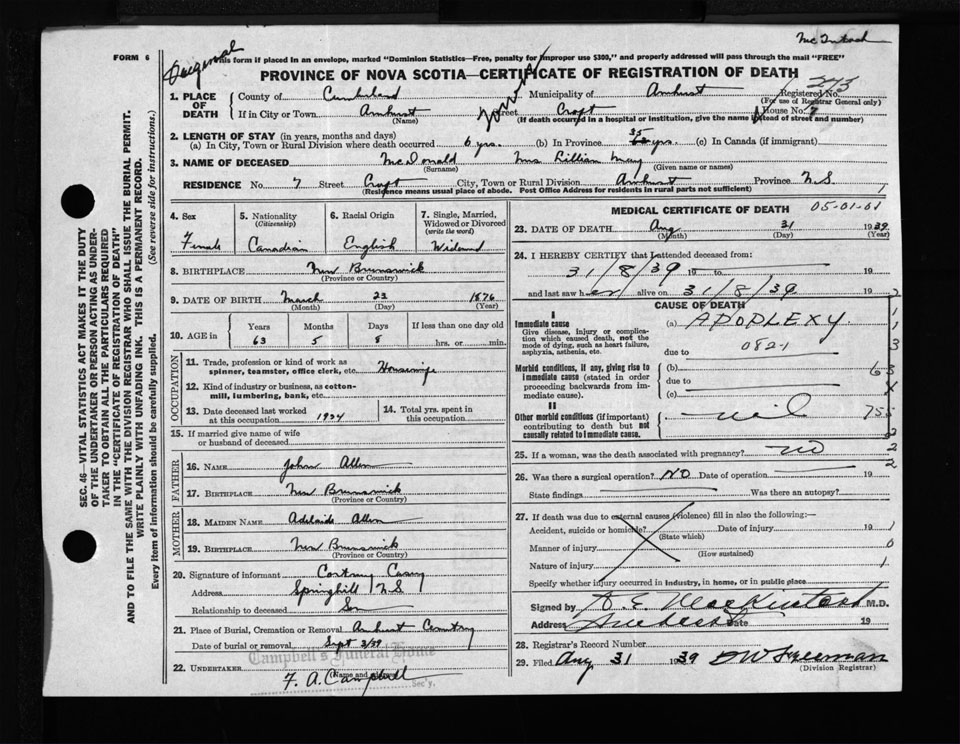 McIntosh
FORM 6
Original
This form if placed in an envelope, marked "Dominion Statistics—Free, penalty for improper use $300," and properly addressed will pass through the mail "FREE"
PROVINCE OF NOVA SCOTIA—CERTIFICATE OF REGISTRATION OF DEATH
1. PLACE OF DEATH
County of Cumberland Municipality of Amherst Registered No. 273
(For use of Registrar General only)
If in City or Town Amherst Street Croft House No. 7
(Name) (If death occurred in a hospital or institution, give the name instead of street and number)
2. LENGTH OF STAY (in years, months and days)
(a) In City, Town or Rural Division where death occurred 6 yrs. (b) In Province 35 yrs. (c) In Canada (if immigrant)
3. NAME OF DECEASED McDonald Mrs Lillian May
(Surname) (Given name or names)
RESIDENCE No. 7 Street Croft City, Town or Rural Division Amherst Province N.S. 1
(Residence means usual place of abode. Post Office Address for residents in rural parts not sufficient)
SEC. 46—VITAL STATISTICS ACT MAKES IT THE DUTY
OF THE UNDERTAKER OR PERSON ACTING AS UNDER-
TAKER TO OBTAIN ALL THE PARTICULARS REQUIRED
IN THE "CERTIFICATE OF REGISTRATION OF DEATH"
AND TO FILE THE SAME WITH THE DIVISION REGISTRAR WHO SHALL ISSUE THE BURIAL PERMIT.
WRITE PLAINLY WITH UNFADING INK. THIS IS A PERMANENT RECORD.
Every item of information should be carefully supplied. (See reverse side for instructions.)
4. Sex
Female
5. Nationality
(Citizenship)
Canadian
6. Racial Origin
English
7. Single, Married,
Widowed or Divorced
(write the word)
Widowed
8. BIRTHPLACE New Brunswick
(Province or Country)
9. DATE OF BIRTH March 23 1876
(Month) (Day) (Year)
10. AGE in
Years Months Days If less than one day old
63 5 8 hrs. or min.
OCCUPATION
11. Trade, profession or kind of work as
spinner, teamster, office clerk, etc. Housewife
12. Kind of industry or business, as cotton-
mill, lumbering, bank, etc.
13. Date deceased last worked
at this occupation 1934
14. Total yrs. spent in
this occupation
15. If married give name of wife
or husband of deceased
FATHER
16. NAME John Allen
17. BIRTHPLACE New Brunswick
(Province or Country)
MOTHER
18. MAIDEN NAME Adelaide Allen
19. BIRTHPLACE New Brunswick
(Province or Country)
20. Signature of informant Casey
Address Springhill N.S.
Relationship to deceased Son
21. Place of Burial, Cremation or Removal Amherst Cemetery
Date of burial or removal Sept 2/39
Campbell's Funeral Home
22. UNDERTAKER
F. A. Campbell
(Name and address)
Sec'y.
MEDICAL CERTIFICATE OF DEATH 05-01-01
23. DATE OF DEATH Aug 31 1939
(Month) (Day) (Year)
24. I HEREBY CERTIFY that I attended deceased from:
31/8/39 19 to 19
and last saw her alive on 31/8/39 19
CAUSE OF DEATH
I
Immediate cause
Give disease, injury or complica-
tion which caused death, not the
mode of dying, such as heart failure,
asphyxia, asthenia, etc.
(a) APOPLEXY
due to 082-1
Morbid conditions, if any, giving rise to
immediate cause (stated in order
proceeding backwards from im-
mediate cause).
(b)
due to
(c)
II
Other morbid conditions (if important)
contributing to death but not
causally related to immediate cause.
nil
25. If a woman, was the death associated with pregnancy? NO
26. Was there a surgical operation? NO Date of operation 19
State findings Was there an autopsy?
27. If death was due to external causes (violence) fill in also the following:—
Accident, suicide or homicide? Date of injury 19
(State which)
Manner of injury
(How sustained)
Nature of injury
Specify whether injury occurred in industry, in home, or in public place
Signed by A. E. MacKintosh M.D.
Address Amherst Date 19
28. Registrar's Record Number
29. Filed Aug 31 1939 Freeman
(Division Registrar)